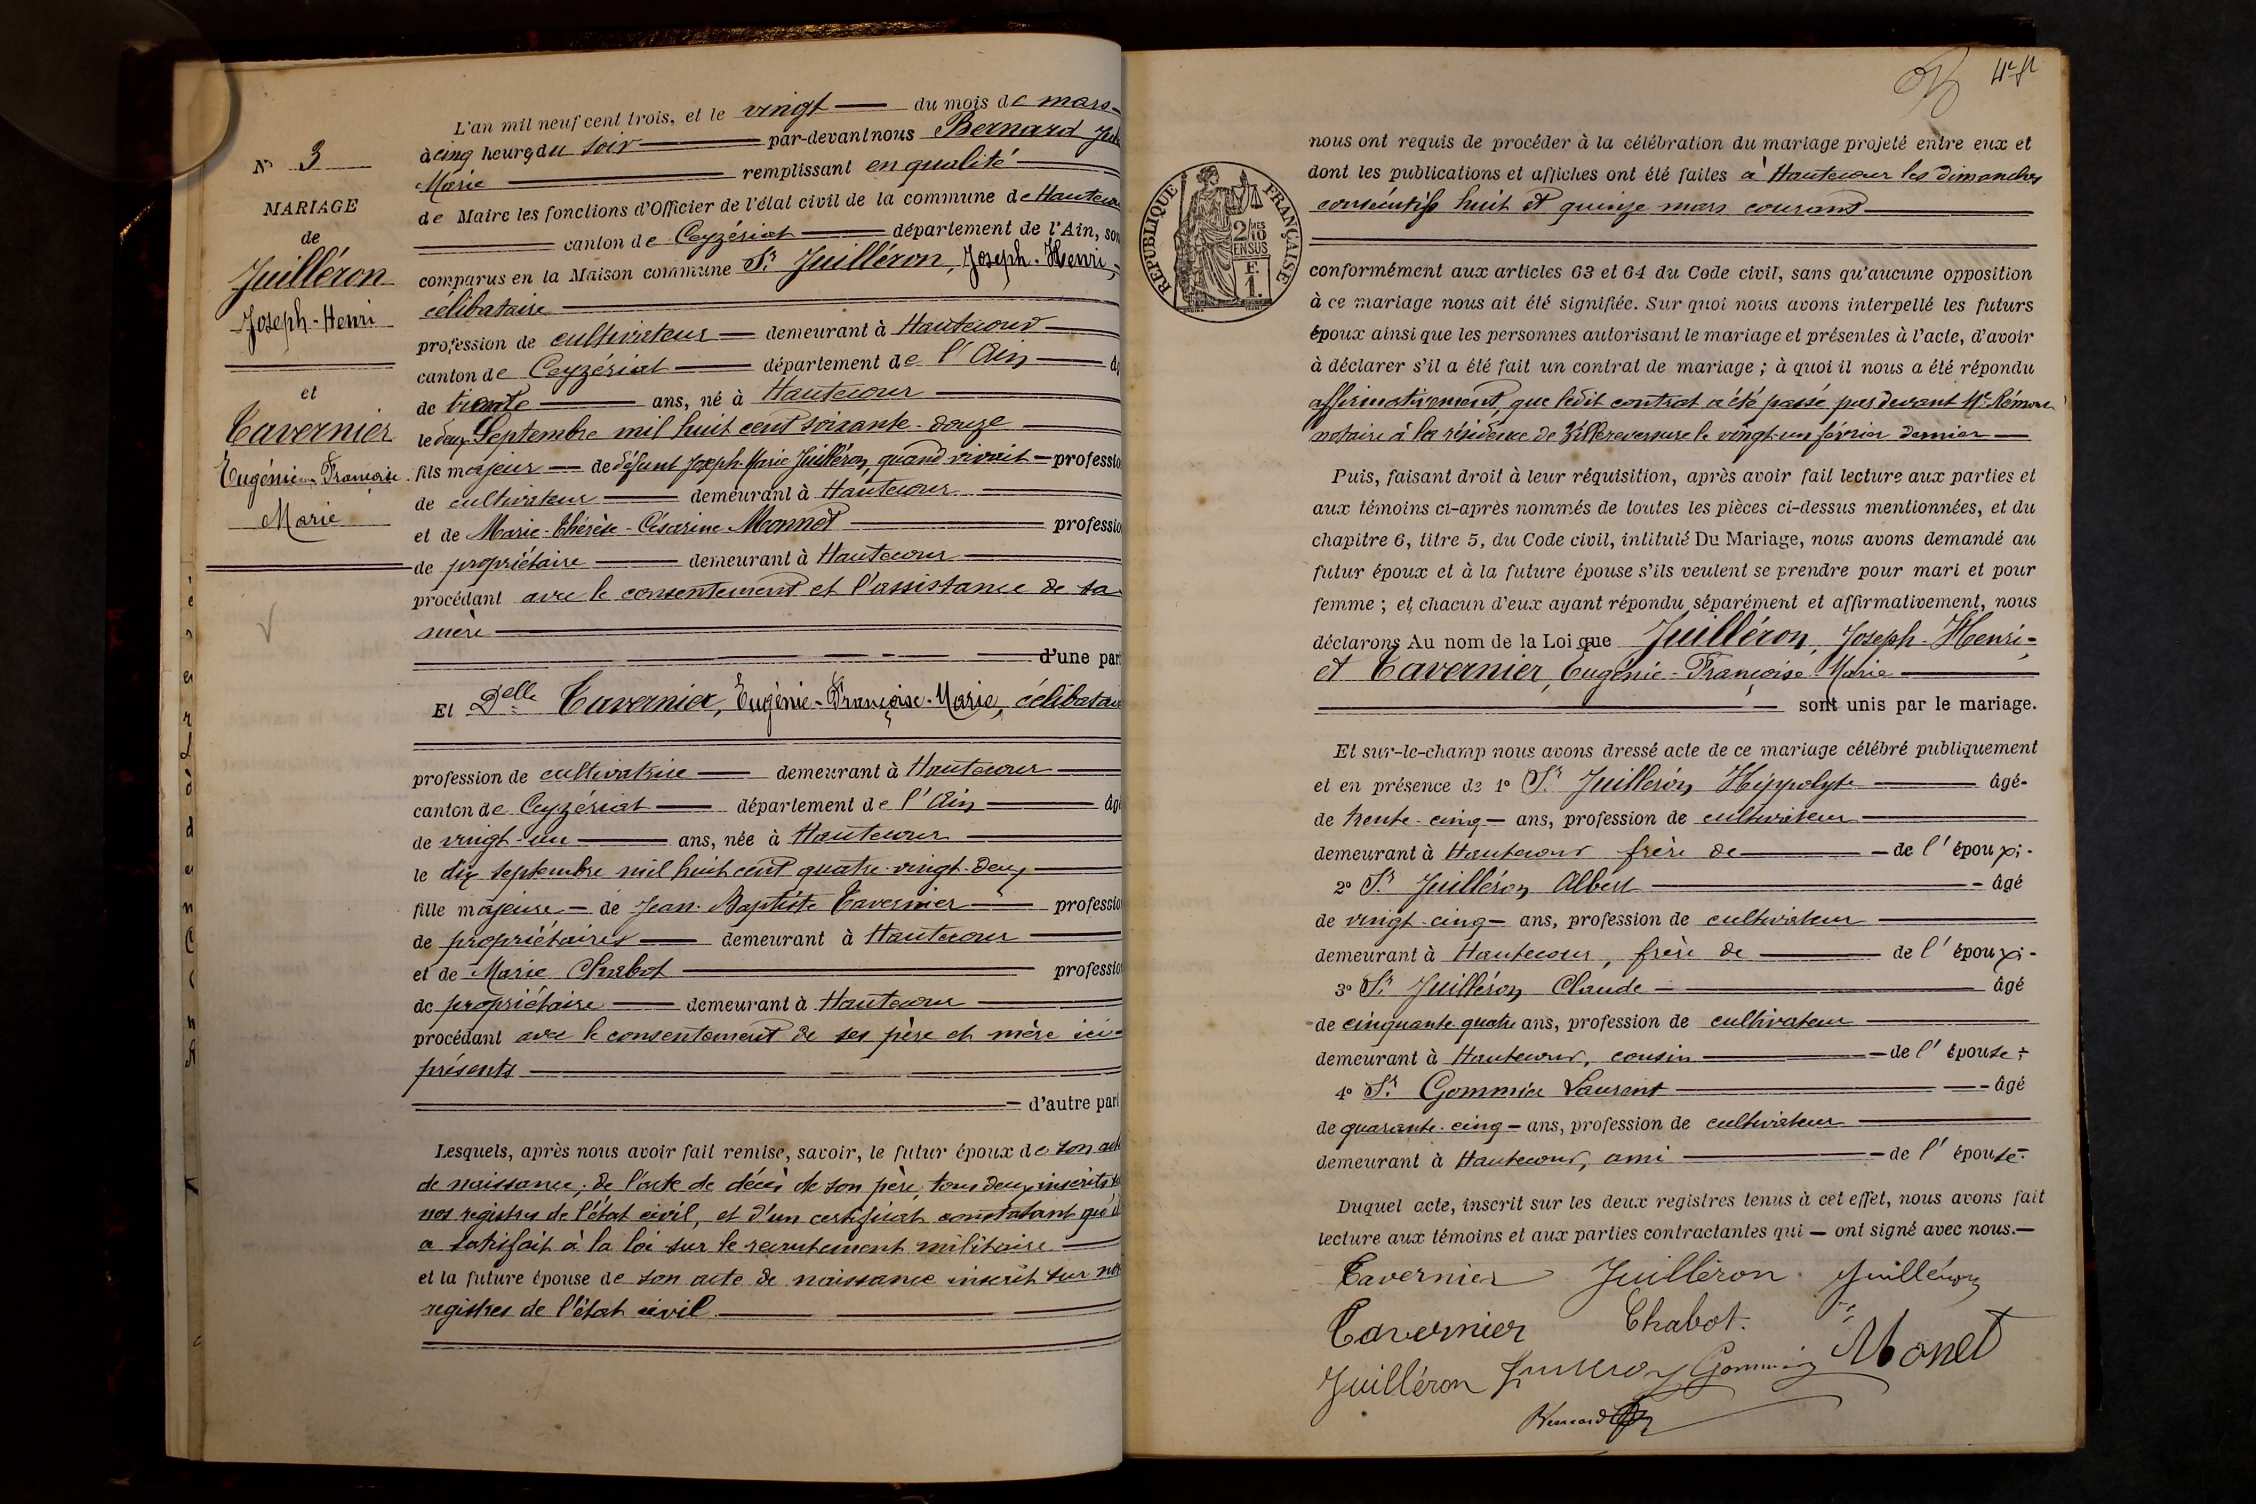 L'an mil neuf cent trois, et le vingt du mois de mars
à cinq heures du soir par-devant nous Bernard
Marie remplissant en qualité
de Maire les fonctions d'Officier de l'état civil de la commune de Hautecour
canton de Ceyzériat département de l'Ain, son
comparus en la Maison commune Sr. Juilléron, Joseph-Henri,
célibataire
profession de cultivateur demeurant à Hautecour
canton de Ceyzériat département de l'Ain âg
de trente ans, né à Hautecour
le deux Septembre mil huit cent soixante-douze
fils majeur de défunt Joseph-Marie Juilléron, quand vivait professio
de cultivateur demeurant à Hautecour
et de Marie-Thérèse-Césarine Monnet professio
de propriétaire demeurant à Hautecour
procédant avec le consentement et l'assistance de sa
mère
d'une part
Et Delle Tavernier, Eugénie-Françoise-Marie, célibatair
profession de cultivatrice demeurant à Hautecour
canton de Ceyzériat département de l'Ain âgé
de vingt-un ans, née à Hautecour
le dix septembre mil huit cent quatre-vingt-deux
fille majeure de Jean-Baptiste Tavernier professio
de propriétaire demeurant à Hautecour
et de Marie Chabot professio
de propriétaire demeurant à Hautecour
procédant avec le consentement de ses père et mère ici
présents
d'autre part
Lesquels, après nous avoir fait remise, savoir, le futur époux de son acte
de naissance, de l'acte de décès de son père, tous deux inscrits
nos registres de l'état civil, et d'un certificat constatant qu'il
a satisfait à la loi sur le recrutement militaire
et la future épouse de son acte de naissance inscrit sur nos
registres de l'état civil
No 3
MARIAGE
de
Juilléron
Joseph-Henri
et
Tavernier
Eugénie-Françoise
Marie
nous ont requis de procéder à la célébration du mariage projeté entre eux et
dont les publications et affiches ont été faites à Hautecour les dimanches
consécutifs huit et quinze mars courant
RÉPUBLIQUE FRANÇAISE
2/10MES
EN SUS
F.
1.
conformément aux articles 63 et 64 du Code civil, sans qu'aucune opposition
à ce mariage nous ait été signifiée. Sur quoi nous avons interpellé les futurs
époux ainsi que les personnes autorisant le mariage et présentes à l'acte, d'avoir
à déclarer s'il a été fait un contrat de mariage ; à quoi il nous a été répondu
affirmativement, que ledit contrat a été passé par devant Me Rémon
notaire à la résidence de Villereversure le vingt-un février dernier
Puis, faisant droit à leur réquisition, après avoir fait lecture aux parties et
aux témoins ci-après nommés de toutes les pièces ci-dessus mentionnées, et du
chapitre 6, titre 5, du Code civil, intitulé Du Mariage, nous avons demandé au
futur époux et à la future épouse s'ils veulent se prendre pour mari et pour
femme ; et chacun d'eux ayant répondu séparément et affirmativement, nous
déclarons Au nom de la Loi que Juilléron, Joseph-Henri
et Tavernier, Eugénie-Françoise-Marie
sont unis par le mariage.
Et sur-le-champ nous avons dressé acte de ce mariage célébré publiquement
et en présence de 1° Sr. Juilléron Hippolyte âgé
de trente-cinq ans, profession de cultivateur
demeurant à Hautecour frère de de l'époux ;
2° Sr. Juilléron Albert âgé
de vingt-cinq ans, profession de cultivateur
demeurant à Hautecour, frère de de l'époux ;
3° Sr. Juilléron Claude âgé
de cinquante quatre ans, profession de cultivateur
demeurant à Hautecour, cousin de l'épouse ;
4° Sr. Gommier Laurent âgé
de quarante-cinq ans, profession de cultivateur
demeurant à Hautecour, ami de l'épouse.
Duquel acte, inscrit sur les deux registres tenus à cet effet, nous avons fait
lecture aux témoins et aux parties contractantes qui ont signé avec nous.
Tavernier Juilléron Juilléron
Tavernier Chabot. Monet
Juilléron Juilleron Gommier
Bernard